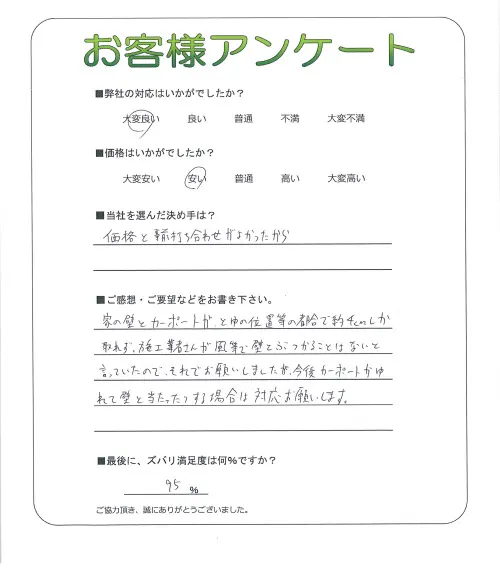 お客様アンケート
■弊社の対応はいかがでしたか？
大変良い 良い 普通 不満 大変不満
■価格はいかがでしたか？
大変安い 安い 普通 高い 大変高い
■当社を選んだ決め手は？
価格と事前打ち合わせがよかったから
■ご感想・ご要望などをお書き下さい。
家の壁とカーポートが、とゆの位置等の都合で約4cmしか
取れず、施工業者さんが風等で壁とぶつかることはないと
言っていたので、それでお願いしましたが、今後カーポートがゆ
れて壁と当たったりする場合は対応お願いします。
■最後に、ズバリ満足度は何%ですか？
95 %
ご協力頂き、誠にありがとうございました。